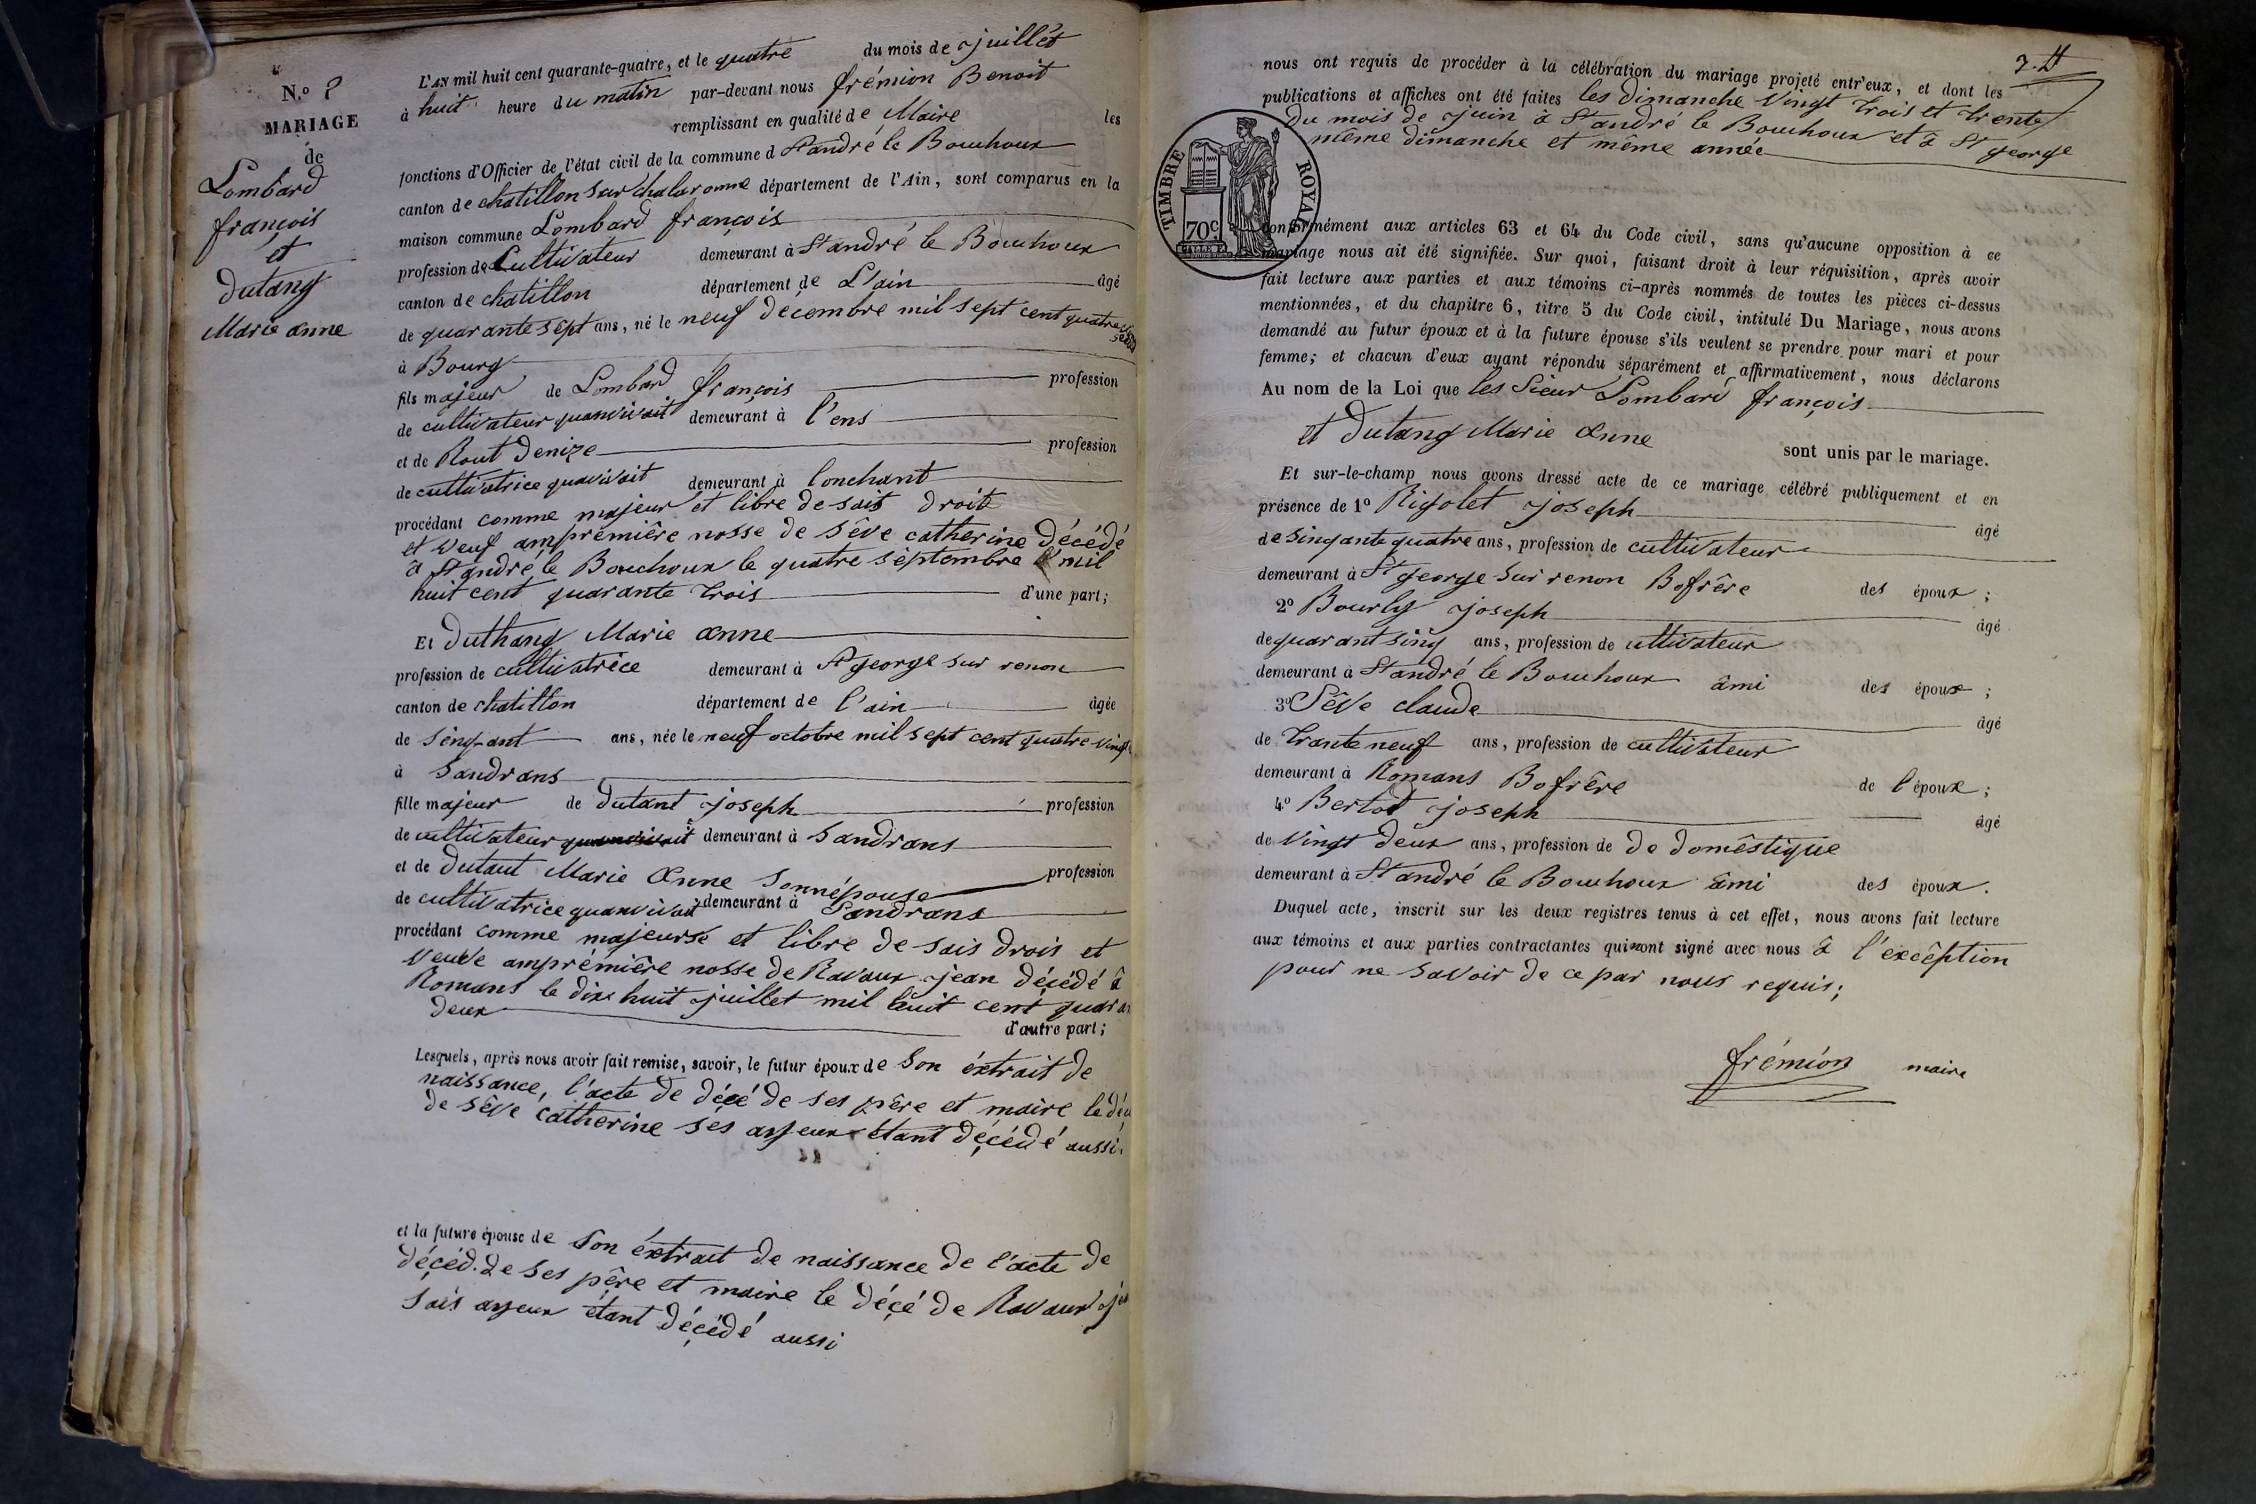 N.o 8
MARIAGE
de
Lombard
françois
et
dutang
Marie anne
L'AN mil huit cent quarante-quatre, et le quatre du mois de juillet
à huit heure du matin par-devant nous frémion Benoit
remplissant en qualité de Maire les
fonctions d'Officier de l'état civil de la commune d St andré le Bouchoux
canton de chatillon sur chalaronne département de l'Ain, sont comparus en la
maison commune Lombard françois
profession de Cultivateur demeurant à St andré le Bouchoux
canton de chatillon département de L'ain âgé
de quarante sept ans, né le neuf décembre mil sept cent quatre
à Bourg
fils majeur de Lombard françois profession
de cultivateur quanvivait demeurant à l'ens
et de Rout denize profession
de cultivatrice quavivait demeurant à lonchant
procédant comme majeur et libre de sais droit
et veuf amprémière nosse de sève catherine décédé
à St andré le Bouchoux le quatre séptembre mil
huit cent quarante trois d'une part;
Et duthang Marie anne
profession de cultivatrice demeurant à St george sur renon
canton de chatillon département de l'ain âgée
de sinqant ans, née le neuf octobre mil sept cent quatre vingt
à Sandrans
fille majeur de dutant joseph profession
de cultivateur demeurant à Sandrans
et de dutant Marie anne sonnépouse profession
de cultivatrice quanvivait demeurant à Sandrans
procédant comme majeurse et libre de sais drois et
veuve amprémière nosse de Ravaux jean décédé à
Romans le dix huit juillet mil huit cent quaran
deux d'autre part;
Lesquels, après nous avoir fait remise, savoir, le futur époux de son éxtrait de
naissance, l'acte de décé de ses père et maire le déc
de sève catherine sés ayeux étant décédé aussi.
et la future épouse de son éxtrait de naissance de l'acte de
décéd. de ses père et maire le décé de Ravaux
sais ayeux étant décédé aussi
nous ont requis de procéder à la célébration du mariage projeté entr'eux, et dont les
publications et affiches ont été faites les dimanche vingt trois et trente
du mois de juin à St andré le Bouchoux et à St george
même dimanche et même année
TIMBRE ROYAL
70c
conformément aux articles 63 et 64 du Code civil, sans qu'aucune opposition à ce
mariage nous ait été signifiée. Sur quoi, faisant droit à leur réquisition, après avoir
fait lecture aux parties et aux témoins ci-après nommés de toutes les pièces ci-dessus
mentionnées, et du chapitre 6, titre 5 du Code civil, intitulé Du Mariage, nous avons
demandé au futur époux et à la future épouse s'ils veulent se prendre pour mari et pour
femme; et chacun d'eux ayant répondu séparément et affirmativement, nous déclarons
Au nom de la Loi que les Sieur Lombard françois
et dutang Marie anne sont unis par le mariage.
Et sur-le-champ nous avons dressé acte de ce mariage célébré publiquement et en
présence de 1o Rigolet joseph âgé
de sinqante quatre ans, profession de cultivateur
demeurant à St george sur renon Bofrère des époux;
2o Bourly joseph âgé
de quarant sinq ans, profession de cultivateur
demeurant à St andré le Bouchoux âmi des époux;
3o Sève claude âgé
de trante neuf ans, profession de cultivateur
demeurant à Romans Bofrère de l'époux;
4o Bertod joseph âgé
de vingt deux ans, profession de de doméstique
demeurant à St andré le Bouchoux âmi des époux.
Duquel acte, inscrit sur les deux registres tenus à cet effet, nous avons fait lecture
aux témoins et aux parties contractantes qui nont signé avec nous à l'excéption
pour ne savoir de ce par nous requis;
frémion maire